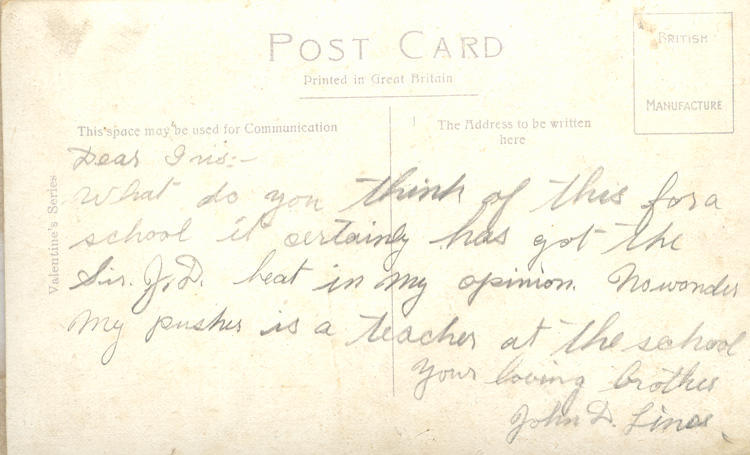 POST CARD
Printed in Great Britain
BRITISH
MANUFACTURE
This space may be used for Communication
The Address to be written
here
Valentine's Series
Dear Iris:-
What do you think of this for a
school it certainly has got the
Sir. J. D. beat in my opinion. No wonder
my pusher is a teacher at the school
Your loving brother
John D.